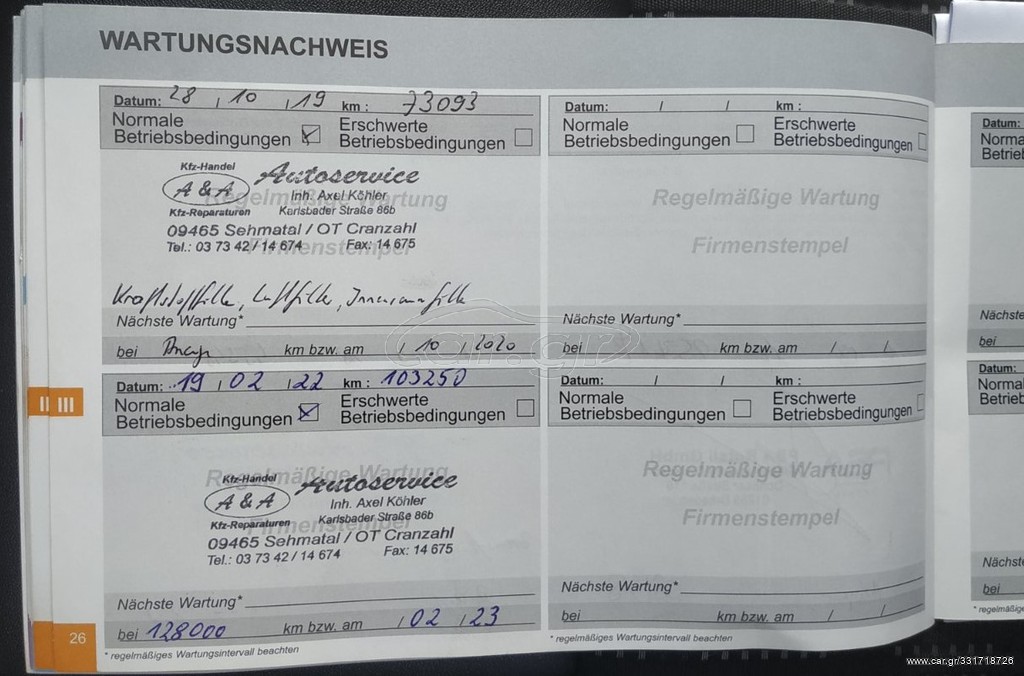 WARTUNGSNACHWEIS
Datum: 28 / 10 / 19 km : 73093
Normale Betriebsbedingungen
Erschwerte Betriebsbedingungen
Regelmäßige Wartung
Firmenstempel
Kfz-Handel
A & A
Kfz-Reparaturen
Autoservice
Inh. Axel Köhler
Karlsbader Straße 86b
09465 Sehmatal / OT Cranzahl
Tel.: 03 73 42 / 14 674 Fax: 14 675
Kraftstofffilter, Luftfilter, Innenraumfilter
Nächste Wartung*
bei km bzw. am / 10 / 2020
Datum: 19 / 02 / 22 km : 103250
Normale Betriebsbedingungen
Erschwerte Betriebsbedingungen
Regelmäßige Wartung
Firmenstempel
Kfz-Handel
A & A
Kfz-Reparaturen
Autoservice
Inh. Axel Köhler
Karlsbader Straße 86b
09465 Sehmatal / OT Cranzahl
Tel.: 03 73 42 / 14 674 Fax: 14 675
Nächste Wartung*
bei 128000 km bzw. am / 02 / 23
* regelmäßiges Wartungsintervall beachten
Datum: / / km :
Normale Betriebsbedingungen
Erschwerte Betriebsbedingungen
Regelmäßige Wartung
Firmenstempel
Nächste Wartung*
bei km bzw. am / /
Datum: / / km :
Normale Betriebsbedingungen
Erschwerte Betriebsbedingungen
Regelmäßige Wartung
Firmenstempel
Nächste Wartung*
bei km bzw. am / /
* regelmäßiges Wartungsintervall beachten
II III
26
Datum:
Nächste
bei
Datum:
Nächste
bei
car.gr
www.car.gr/331718726